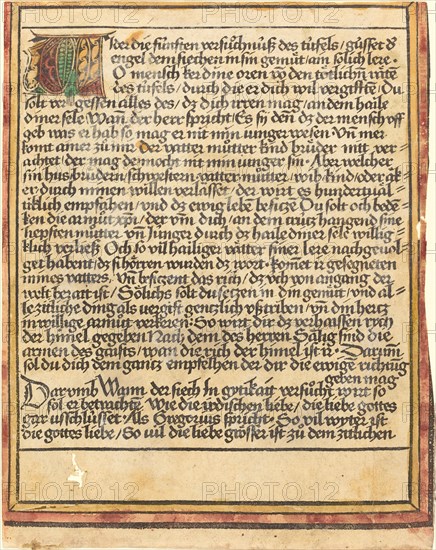 Wider die fünften versůchnuß des tüfels / güsset d̕
engel dem siechen in sin gemüt / ain sölich lere ·
O mensch ker dine oren vō den tötlichn̄ räte
des tüfels / durch die er dich wil vergifftē / Du
solt ver gessen alles des / dz dich irren mag / an dem haile
diner sele Wañ der herr spricht / Es sy deñ dz der mensch vff
geb was er hab so mag er nit min iunger wesen · Vñ mer
komt ainer zů mir der vatter můtter kind brůder nitt ver
achtet / der mag dennocht nit min iunger sin · Aber welcher
sin hus / brůdern / schwestern / vatter / můtter / wib / kind / oder äk
er / durch minen willen verlasset der wirt es hundertual
tiklich empfahen / vnd dz ewig lebē besitzē Du solt och bedē
ken die armůt xp̄i / der vm̄ dich / an dem crütz hangend sine
liepsten můtter vñ iunger durch dz haile diner sele willig
klich verließ Och so vil hailiger vätter siner lere nachgevol
get habent / dz si hören wurden dz wort · komet ir gesegneten
mines vatters · Vñ besitzent das rich / dz üch von angang der
welt berait ist / Sölichs solt du setzen in din gemüt / vnd al
le zitliche ding als vergift gentzlich vßtriben / vñ din hertz
in willige armůt verkeren : So wirt dir dz verhaissen rych
der himel gegeben Nach dem des herren Sälig sind die
armen des gaists / wan die rich der himel ist ir · Darum̄
sol du dich dem gantz empfelhen der dir die ewige richtūg
geben mag
Darumb Wann der siech In gytikait versůcht wirt so
sol er betrachtē · Wie die irdischen liebe / die liebe gottes
gar vschlüsset · Als Gregorius spricht · So vil wyter ist
die gottes liebe / So vil die liebe grösser ist zů dem zitlichen
PHOTO12